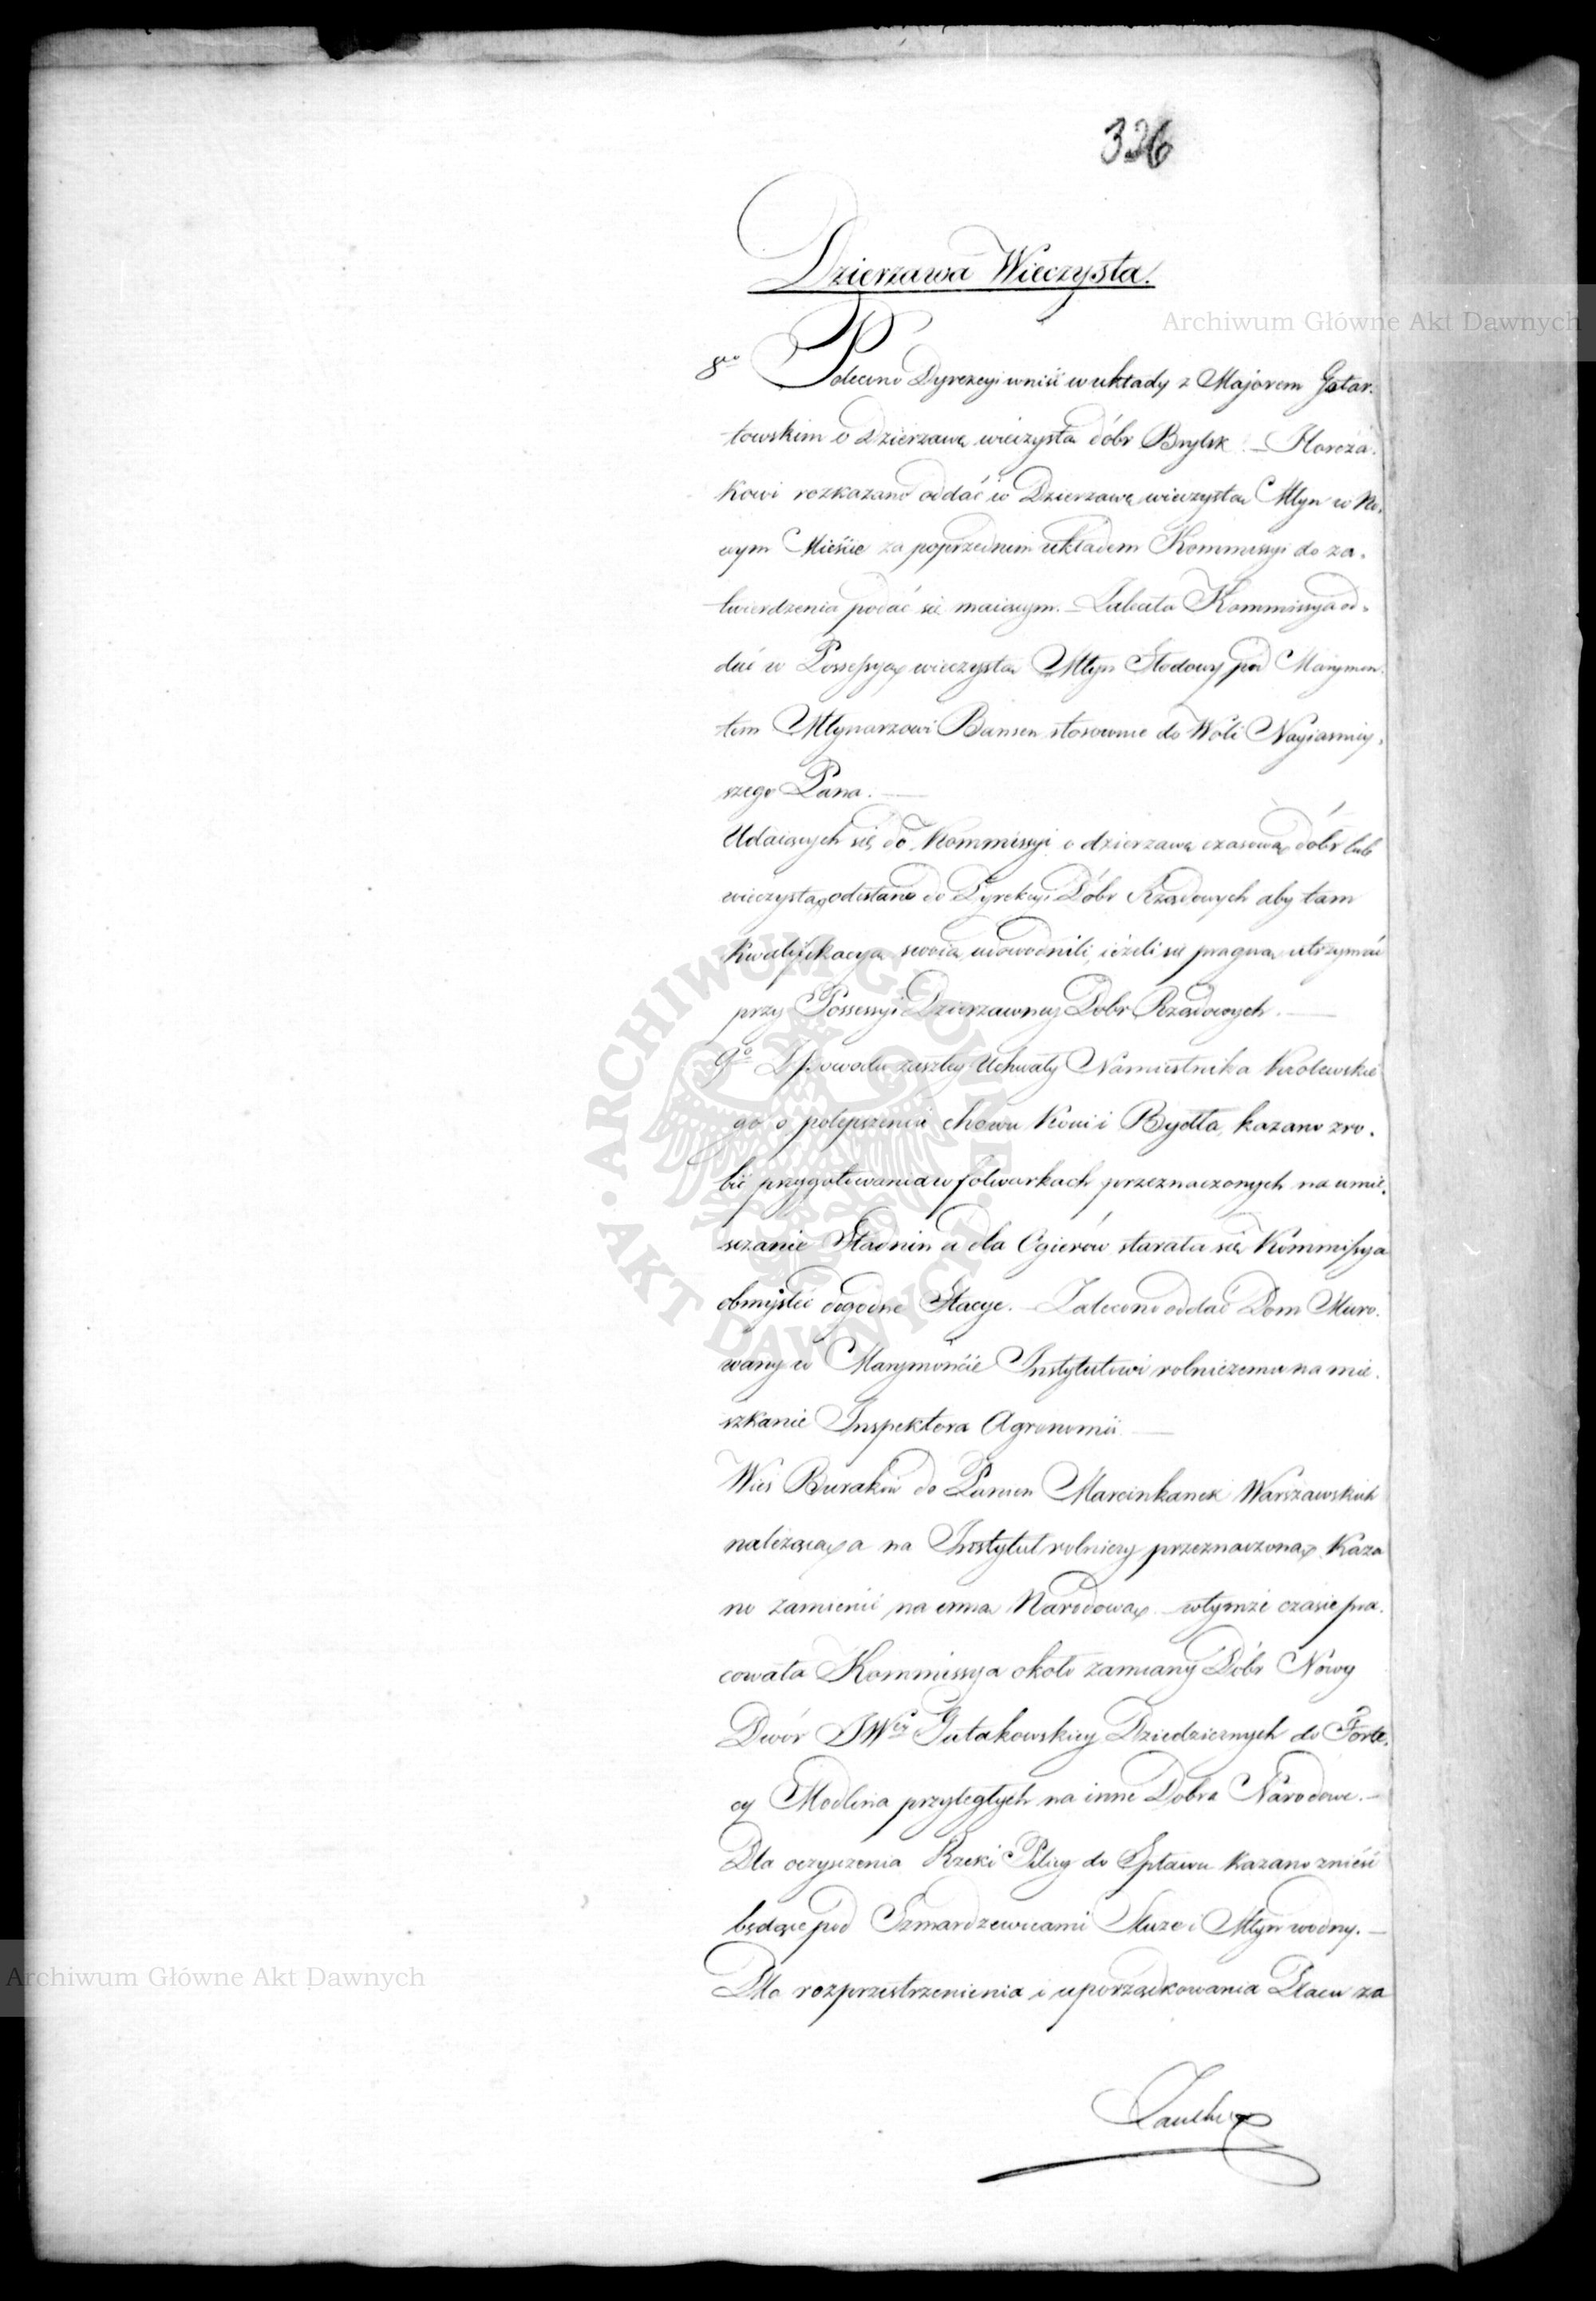 326
Dzierzawa Wieczysta.
8vo Polecono Dyrekcyi wniść w układy z Majorem Gatar-
towskim o Dzierzawę wieczystą dóbr Brylsk. – Florcza-
kowi rozkazano oddać w Dzierzawę wieczystą Młyn w No-
wym Mieście za poprzednim układem Kommissyi do za-
twierdzenia podać się maiącym. – Zaleciła Kommissya od-
dać w Possessyą wieczystą Młyn Słodowy pod Marymon-
tem Młynarzowi Bansen stosownie do Woli Nayiaśniey-
szego Pana. –
Udaiących się do Kommissyi o dzierzawę czasową dóbr lub
wieczystą odesłano do Dyrekcyi Dóbr Rządowych aby tam
kwalifikacyą swoią udowodnili, ieżeli się pragną utrzymać
przy Possessyi Dzierzawney Dobr Rządowych. –
9o Z powodu zaszłey Uchwały Namiestnika Królewskie
go o polepszeniu chowu Koni i Bydła, kazano zro-
bić przygotowania w folwarkach przeznaczonych na umie-
szczanie Stadnin a dla Ogierów starała się Kommissya
obmyśleć dogodne Stacye. – Zalecono oddać Dom Muro-
wany w Marymoncie Instytutowi rolniczemu na mie-
szkanie Inspektora Agronomii –
Wieś Buraków do Panien Marcinkanek Warszawskich
należącą a na Instytut rolniczy przeznaczoną Kaza
no zamienić na inną Narodową – w tymże czasie pra-
cowała Kommissya około zamiany Dóbr Nowy
Dwór JWey Gutakowskiey Dziedzicznych do Forte-
cy Modlina przyległych na inne Dobra Narodowe. –
Dla oczyszczenia Rzeki Pilicy do Spławu kazano znieść
będące pod Szmardzewicami Śluze i Młyn wodny. –
Dla rozprzestrzenienia i uporządkowania Placu za
Archiwum Główne Akt Dawnych
ARCHIWUM GŁÓWNE AKT DAWNYCH
Archiwum Główne Akt Dawnych